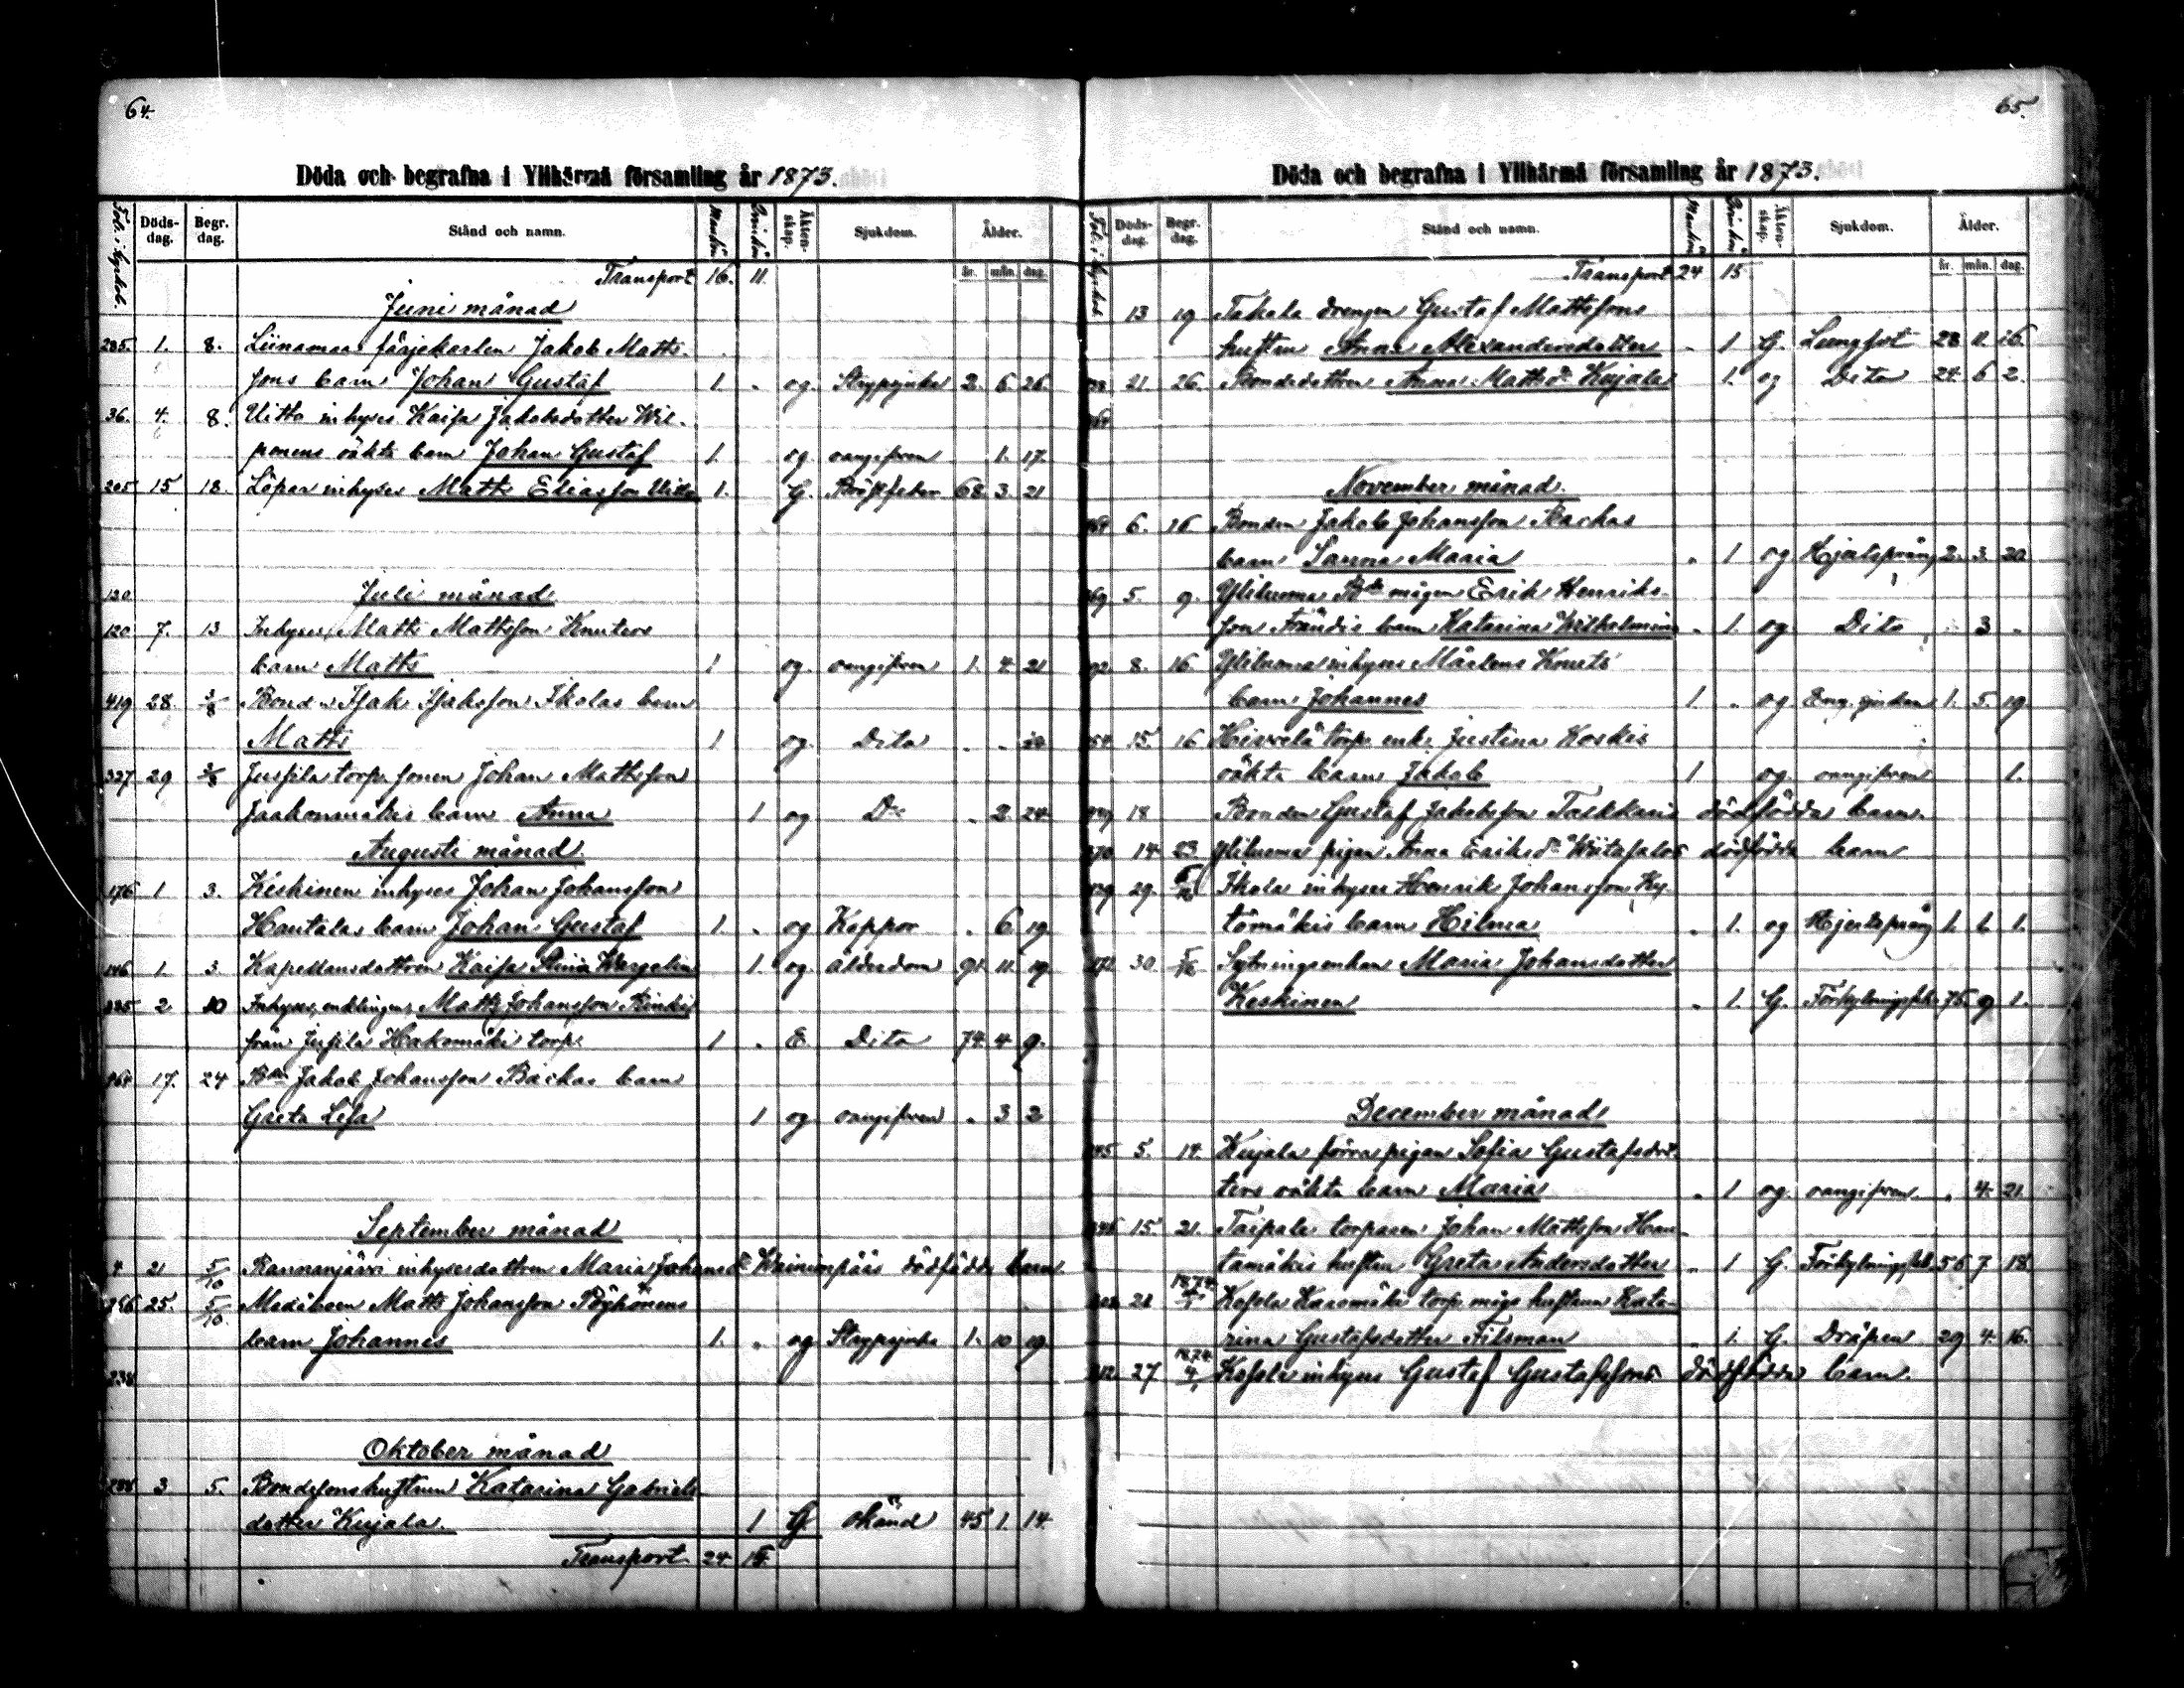 64.
Döda och begrafna i Ylihärmä församling år 1873.
Fol. i kyrkob. Döds-dag. Begr. dag. Stånd och namn. Mankön Qvinkön Äktenskap. Sjukdom. Ålder.
år. mån. dag.
Transport 16. 11
Juni månad
285. 1. 8. Liinamaa färjekarlen Jakob Matts
sons barn Johan Gustaf 1. . og. Strypsjuka 2. 6 26
36. 4. 8. Uitto inhyses Kaisa Jakobsdotter Wil-
ponens oäkta barn Johan Gustaf 1. og. oangifven 1. 17.
205 15 18. Löpar inhyses Matts Eliasson Uitto 1. G. Bröstfeber 68. 3. 21
120 Juli månad
120 7. 13 Inhyses Matts Mattsson Knuters
barn Matts 1 og. oangifven 1. 4 21
419 28. 3/8 Bonden Isak Isaksson Ikolas barn
Matts 1 og. Dito . .
327 29 3/8 Jussila torp. sonen Johan Mattsson
Jaakonmäkis barn Anna 1 og Do . 2. 24
Augusti månad
176 1 3. Keskinen inhyses Johan Johansson
Hautalas barn Johan Gustaf 1. . og Koppor . 6 19
146 1 3. Kapellansdottren Kaisa Stina Wargelin 1. og ålderdom 91. 11. 19.
2 10 Inhyses enklingen Matts Johansson
från Jussila Hakomäki torp. 1 . E. Dito 74. 4 9.
17. 24 Bdn Jakob Johansson Backas barn
Greta Lisa 1 og oangifven . 3 2
September månad
21 5/10 Rannanjärvi inhysesdottren Maria Johansdr Wainionpääs dödfödda barn
25. 5/10 Matts Johansson Pöyhönens
barn Johannes 1. . og Strypsjuka 1. 10 19
238
Oktober månad
3 5. Bondesonshustrun Katarina Gabriels
dotter Kujala. 1 G. okänd 45 1. 14
Transport 24. 15.
65.
Döda och begrafna i Ylihärmä församling år 1873.
Döds-dag. Begr. dag. Stånd och namn. Mankön Qvinkön Äktenskap. Sjukdom. Ålder.
år. mån. dag.
Transport 24 15
13 19 Takala drengen Gustaf Mattssons
hustru Anna Alexandersdotter - 1 G. Lungsot 28 11 16
21. 26. Bondedottren Anna Mattsdr Kujala 1. og Dito 24. 6 2.
November månad.
6. 16 Bonden Jakob Johansson Backas
barn Sanna Maria . 1 og Hjertsprång 2. 3. 20
5. 9. Yliluoma Bde mågen Erik Henriks-
son Frändis barn Katarina Wilhelmina . 1. og Dito . 3 .
8. 16 Yliluoma inhyses Mårtens Knuts
barn Johannes 1. . og Eng. sjukan 1. 5. 19
15. 16 torp. enk. Justina Koskis
oäkta barn Jakob 1 og. oangifven 1.
18 Bonden Gustaf Jakobsson dödfödda barn.
14 23 Yliluoma pigan Anna Eriksdr Wiitasalos dödfödda barn
29. Ikola inhyses Henrik Johansson Ky-
tömäkis barn Hilma . 1. og Hjertsprång 1. 6 1.
30 Sytningsenkan Maria Johansdotter
Keskinen . 1. G. Förkylningsfeb. 76. 9 1.
December månad
5. 14. Kujala förra pigan Sofia Gustafsdot
ters oäkta barn Maria . 1 og. oangifven . 4. 21
15. 21. Taipale torparen Johan Mattsson Hau-
tamäkis hustru Greta Andersdotter . 1 G. Förkylningsfeb. 56 7 18
1874 Kosola torp. mågs hustrun Kata-
rina Gustafsdotter Filsman 1. G. 29 4. 16.
27 1874 4/1 Kosola inhyses Gustaf Gustafssons dödfödda barn.